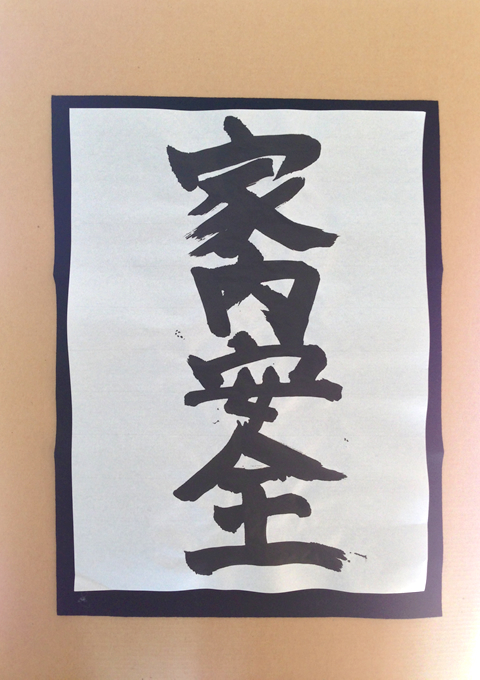 家内安全